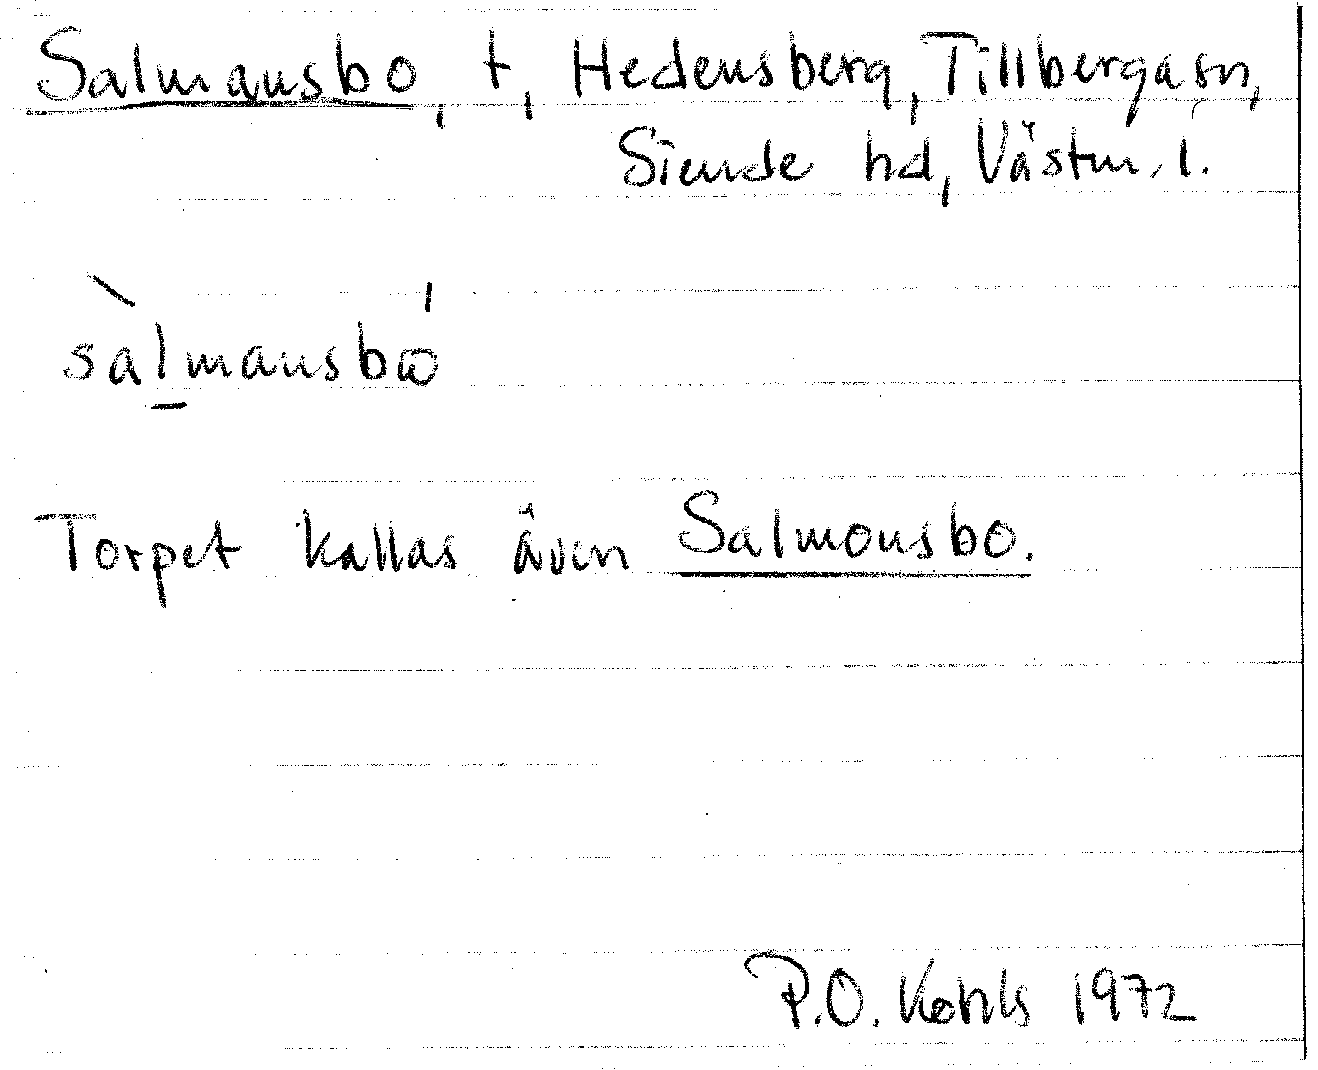 Salmansbo, t, Hedensberg, Tillberga sn,
Siende hd, Västm. l.
sàl̲mansbó
Torpet kallas även Salmonsbo.
P.O. Kohls 1972